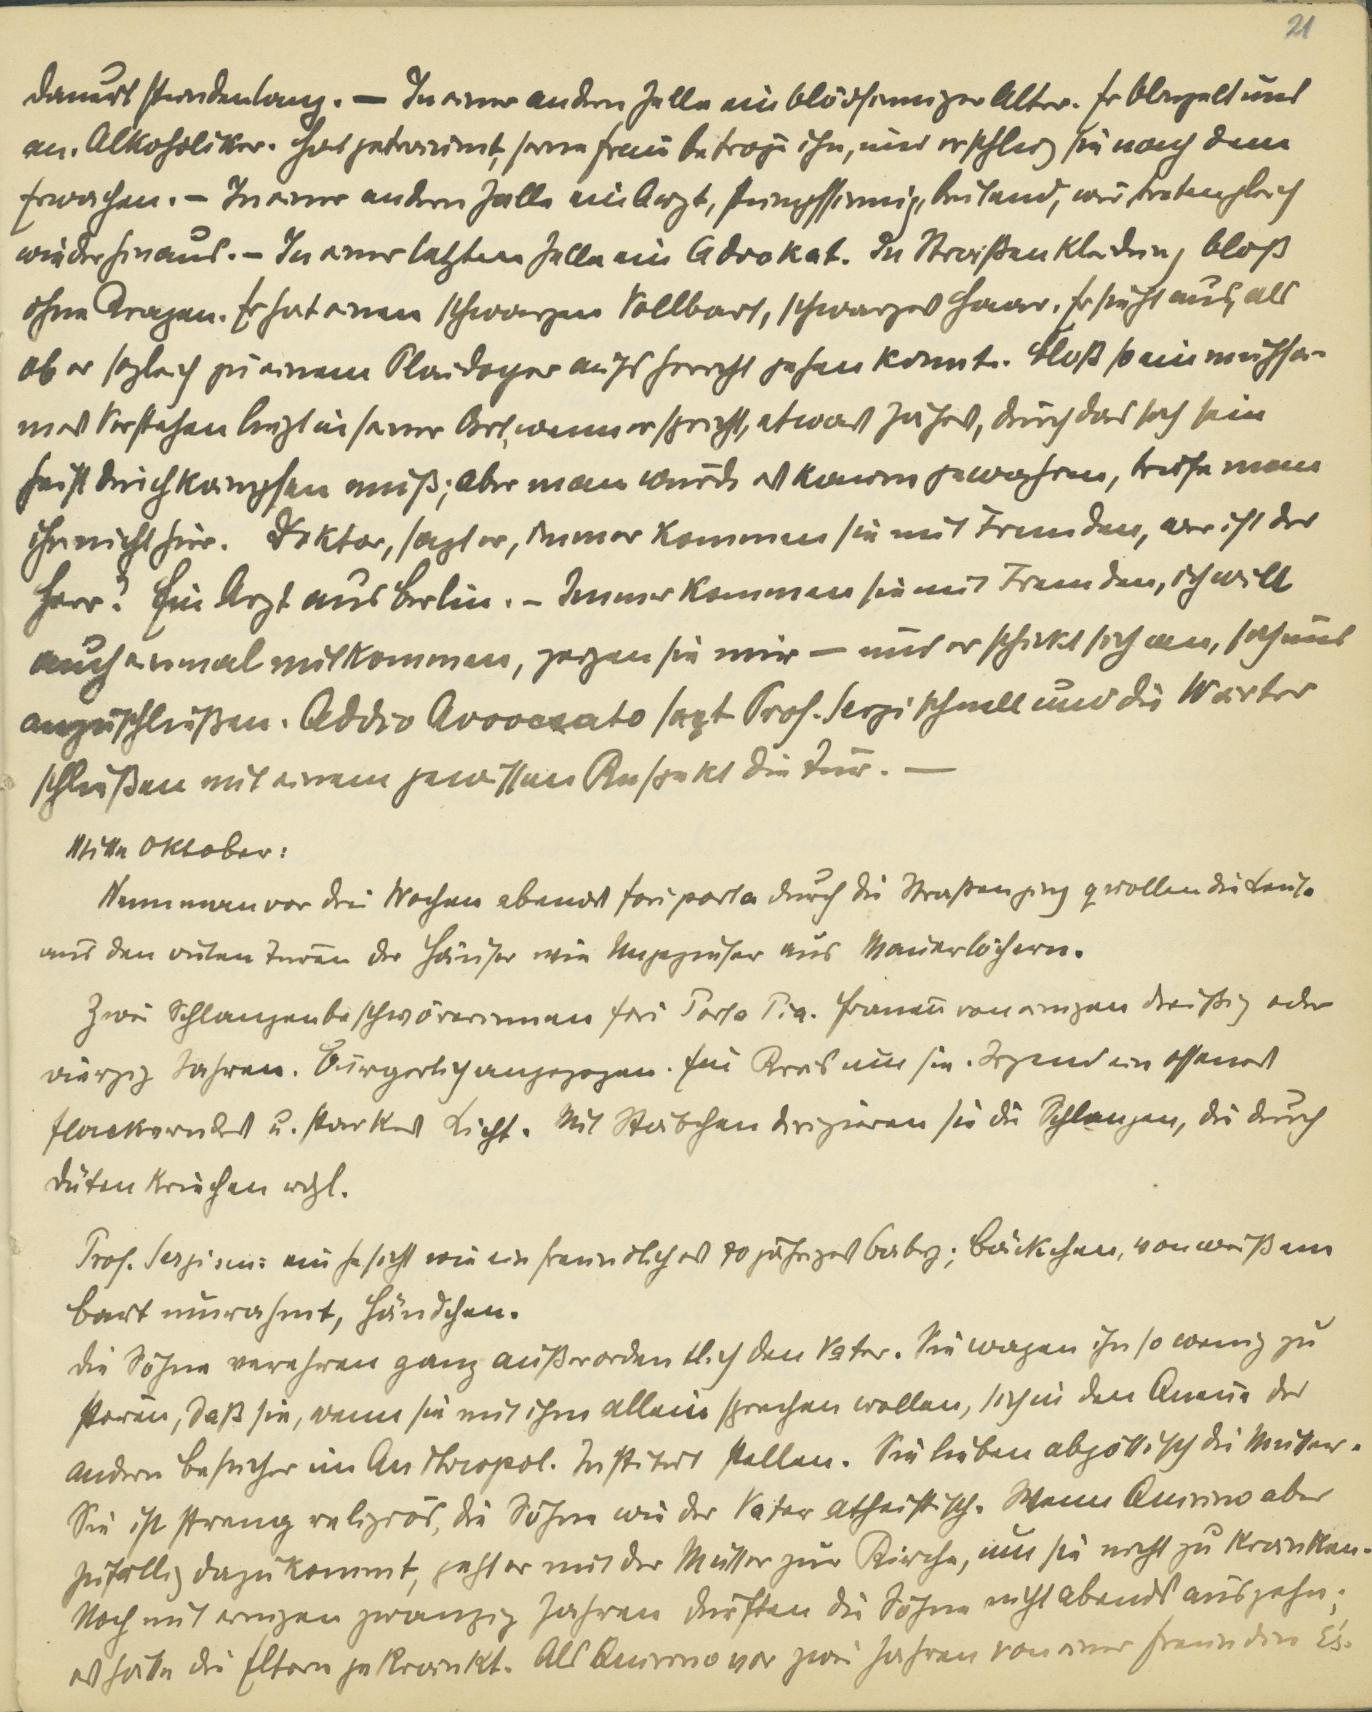 21
dauert stundenlang. – In einer andern Zelle ein blödsinniger Alter. Er blinzelt uns
an. Alkoholiker. Hat geträumt, seine Frau betrog ihn, und erschlug sie nach dem
Erwachen. – In einer andern Zelle ein Arzt, stumpfsinnig, brütend, wir traten gleich
wieder hinaus. – In einer letzten Zelle ein Advokat. In Straßenkleidung bloß
ohne Kragen. Er hat einen schwarzen Vollbart, schwarzes Haar. Er sieht aus, als
ob er sogleich zu einem Plaidoyer aufs Gericht gehen könnte. Bloß so ein mühsa-
mes Verstehen liegt in seiner Art, wenn er spricht, etwas Zähes, durch das sich sein
Geist durchkämpfen muß; aber man würde es kaum gewahren, träfe man
ihn nicht hier. Doktor, sagt er, immer kommen sie mit Fremden, wer ist der
Herr? Ein Arzt aus Berlin. – Immer kommen sie mit Fremden, ich will
auch einmal mitkommen, zeigen sie mir – und er schickt sich an, sich uns
anzuschließen. Addio Avvocato sagt Prof. Sergi schnell und die Wärter
schließen mit einem gewissen Respekt die Tür. –
Mitte Oktober:
Wenn man vor drei Wochen abends fori porta durch die Straßen ging quollen die Leute
aus den roten Türen der Häuser wie Ungeziefer aus Mauerlöchern.
Zwei Schlangenbeschwörerinnen fori Porta Pia. Frauen von einigen dreißig oder
vierzig Jahren. Bürgerlich angezogen. Ein Kreis um sie. Irgend ein offenes
flackerndes u. starkes Licht. Mit Stäbchen dirigieren sie die Schlangen, die durch
Düten kriechen udgl.
Prof. Sergi sen: ein Gesicht wie ein freundliches 70 jähriges Baby; Bäckchen, von weißem
Bart umrahmt, Händchen.
Die Söhne verehren ganz außerordentlich den Vater. Sie wagen ihn so wenig zu
stören, daß sie, wenn sie mit ihm allein sprechen wollen, sich in den Queue der
andern Besucher im Anthropol. Institut stellen. Sie lieben abgöttisch die Mutter.
Sie ist streng religiös, die Söhne wie der Vater atheistisch. Wenn Quirino aber
zufällig dazukommt, geht er mit der Mutter zur Kirche, um sie nicht zu kränken.
Noch mit einigen zwanzig Jahren durften die Söhne nicht abends ausgehn;
es hätte die Eltern gekränkt. Als Quirino vor zwei Jahren von einer Freundin